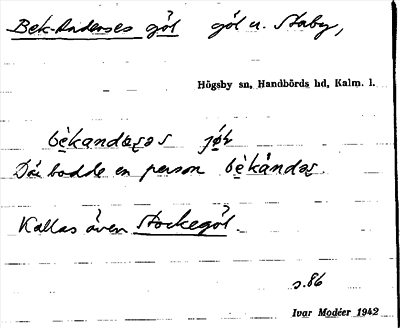 Bek-Anderses göl göl u. Staby,
Högsby sn, Handbörds hd, Kalm. l.
Där bodde en person
Kallas även Stockegöl.
s. 86
Ivar Modéer 1942